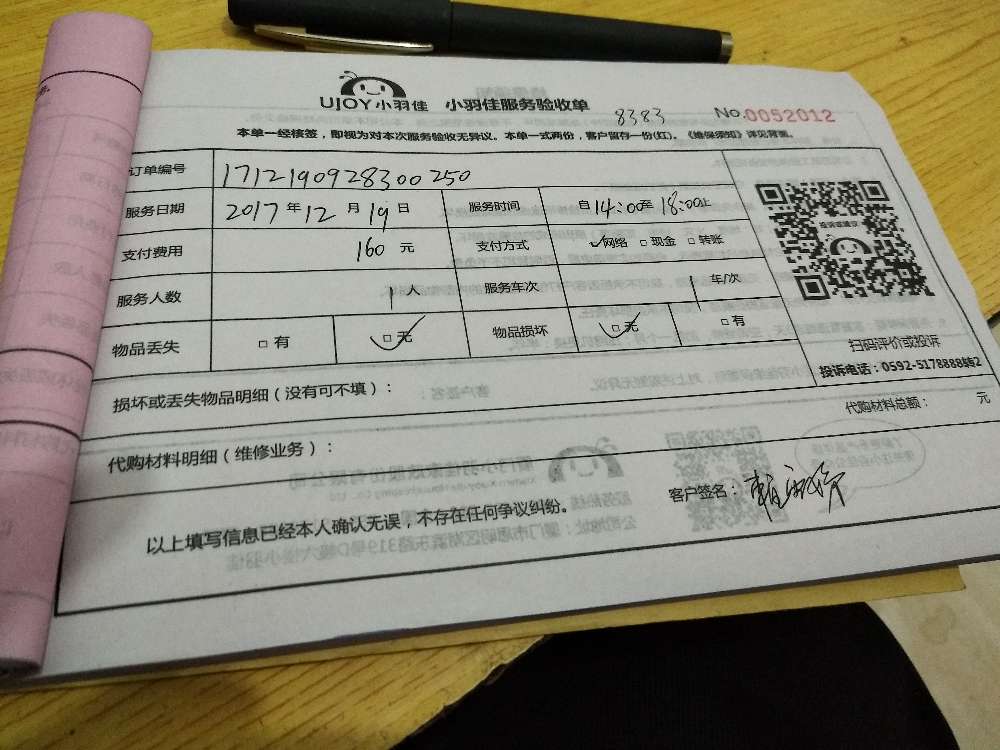 UJOY小羽佳 小羽佳服务验收单 8383 No.0052012
本单一经核签，即视为对本次服务验收无异议。本单一式两份，客户留存一份(红)。《维保须知》详见背面。
订单编号 1712190928300250
服务日期 2017年12月19日 服务时间 自14:00至18:00止
支付费用 160元 支付方式 ✓网络 □现金 □转账
服务人数 1人 服务车次 1车/次
物品丢失 □有 □无✓ 物品损坏 □无✓ □有
扫码评价或投诉
投诉电话：0592-5178888转2
损坏或丢失物品明细（没有可不填）：
代购材料明细（维修业务）： 代购材料总额： 元
以上填写信息已经本人确认无误，不存在任何争议纠纷。 客户签名：